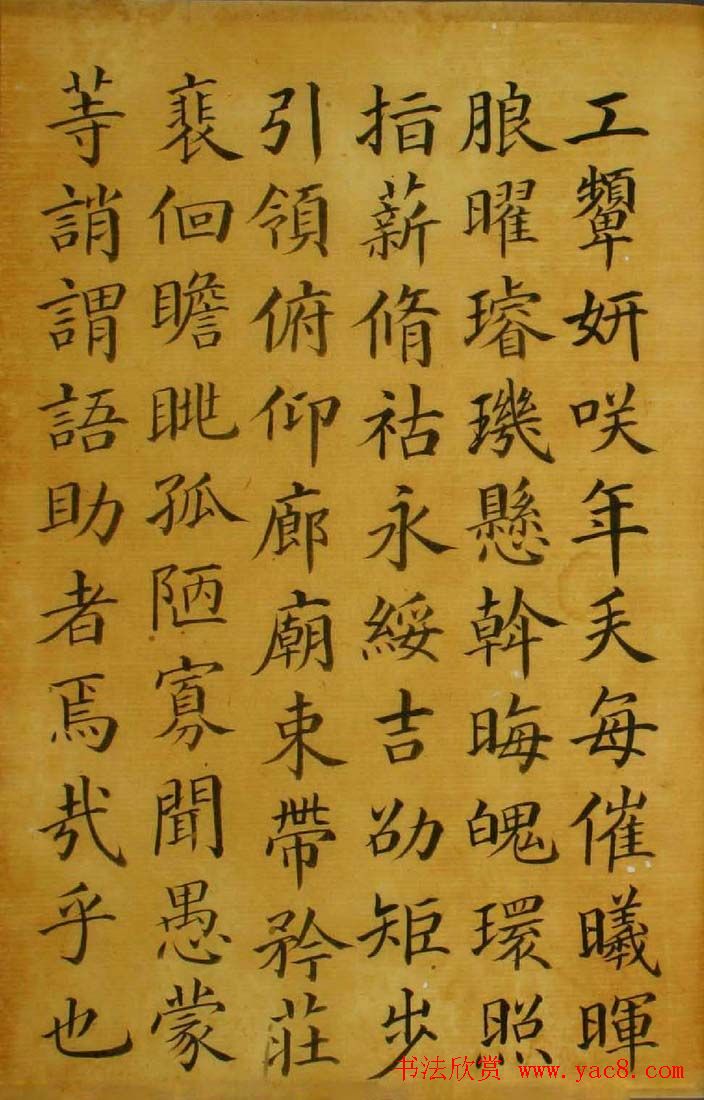 工顰妍咲年矢每催曦暉
朖曜璿璣懸斡晦魄環照
指薪脩祜永綏吉劭矩步
引領俯仰廊廟束帶矜莊
裵佪瞻眺孤陋寡聞愚蒙
等誚謂語助者焉哉乎也
书法欣赏 www.yac8.com